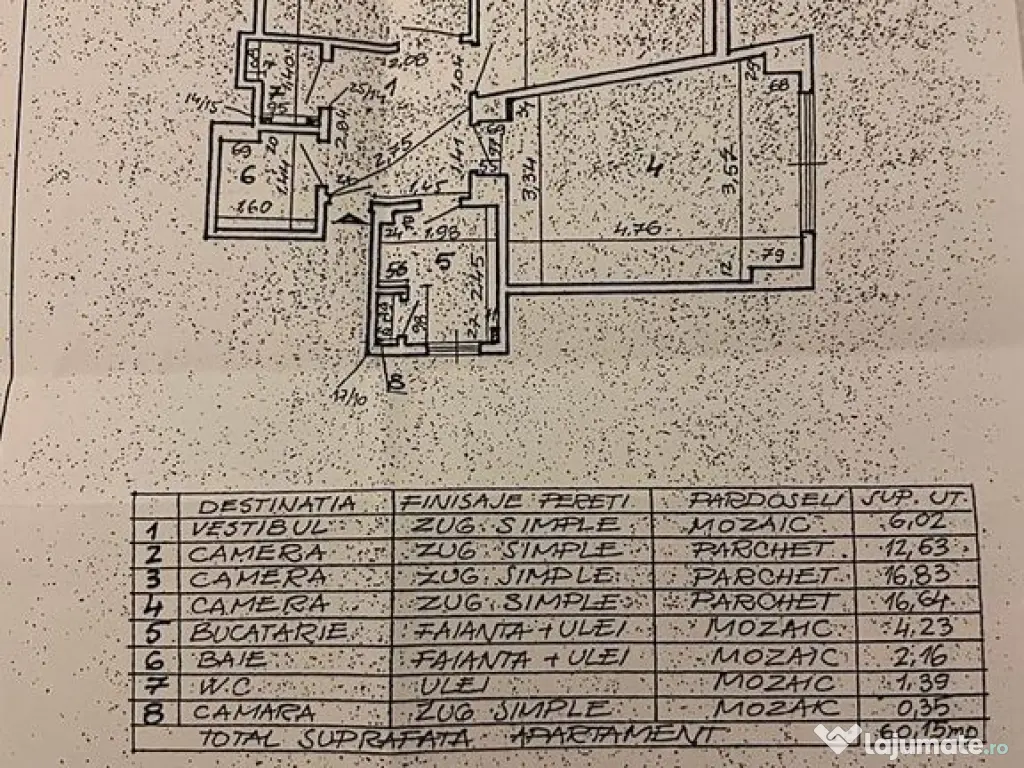 2.08
1
1.04
7
1.40
95
25/14
14/15
2.04
2.75
1.41
59
70
6
1.44
1.60
3.34
4
3.57
68
4.76
79
12
1.45
24
1.98
5
56
2.45
98
22
17/10
8
DESTINATIA FINISAJE PERETI PARDOSELI SUP. UT.
1 VESTIBUL ZUG SIMPLE MOZAIC 6,02
2 CAMERA ZUG SIMPLE PARCHET 12,53
3 CAMERA ZUG SIMPLE PARCHET 16,83
4 CAMERA ZUG SIMPLE PARCHET 16,64
5 BUCATARIE FAIANTA + ULEI MOZAIC 4,23
6 BAIE FAIANTA + ULEI MOZAIC 2,16
7 W.C ULEI MOZAIC 1.39
8 CAMARA ZUG SIMPLE MOZAIC 0,35
TOTAL SUPRAFATA APARTAMENT 60,15mp
lajumate.ro